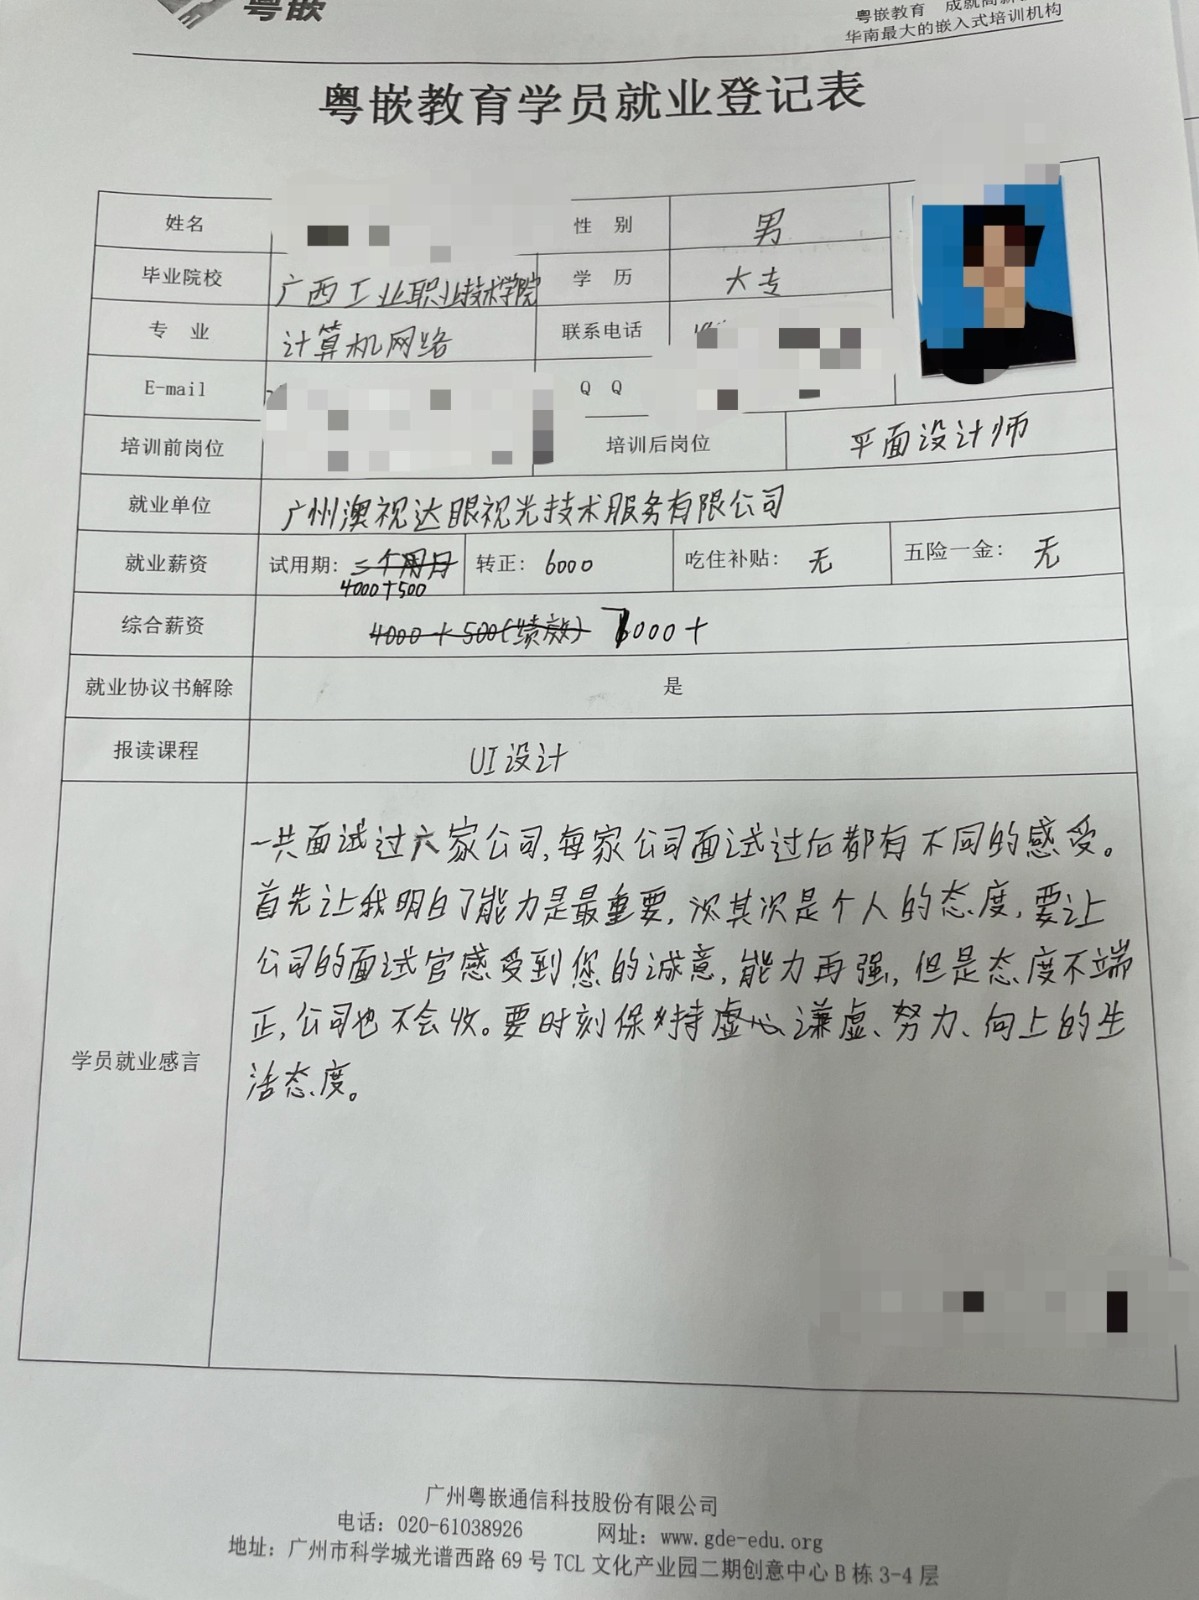 粤嵌
粤嵌教育 成就高薪
华南最大的嵌入式培训机构
粤嵌教育学员就业登记表
姓名 性 别 男
毕业院校 广西工业职业技术学院 学 历 大专
专 业 计算机网络 联系电话
E-mail Q Q
培训前岗位 培训后岗位 平面设计师
就业单位 广州澳视达眼视光技术服务有限公司
就业薪资 试用期: 三个月 转正: 6000 吃住补贴: 无 五险一金: 无
4000+500
综合薪资 4000+500(绩效) 000+
就业协议书解除 是
报读课程 UI设计
一共面试过六家公司,每家公司面试过后都有不同的感受。
首先让我明白了能力是最重要,次其次是个人的态度,要让
公司的面试官感受到您的诚意,能力再强,但是态度不端
学员就业感言
正,公司也不会收。要时刻保持虚心谦虚、努力、向上的生
活态度。
广州粤嵌通信科技股份有限公司
电话: 020-61038926 网址: www.gde-edu.org
地址: 广州市科学城光谱西路69号TCL文化产业园二期创意中心B栋3-4层